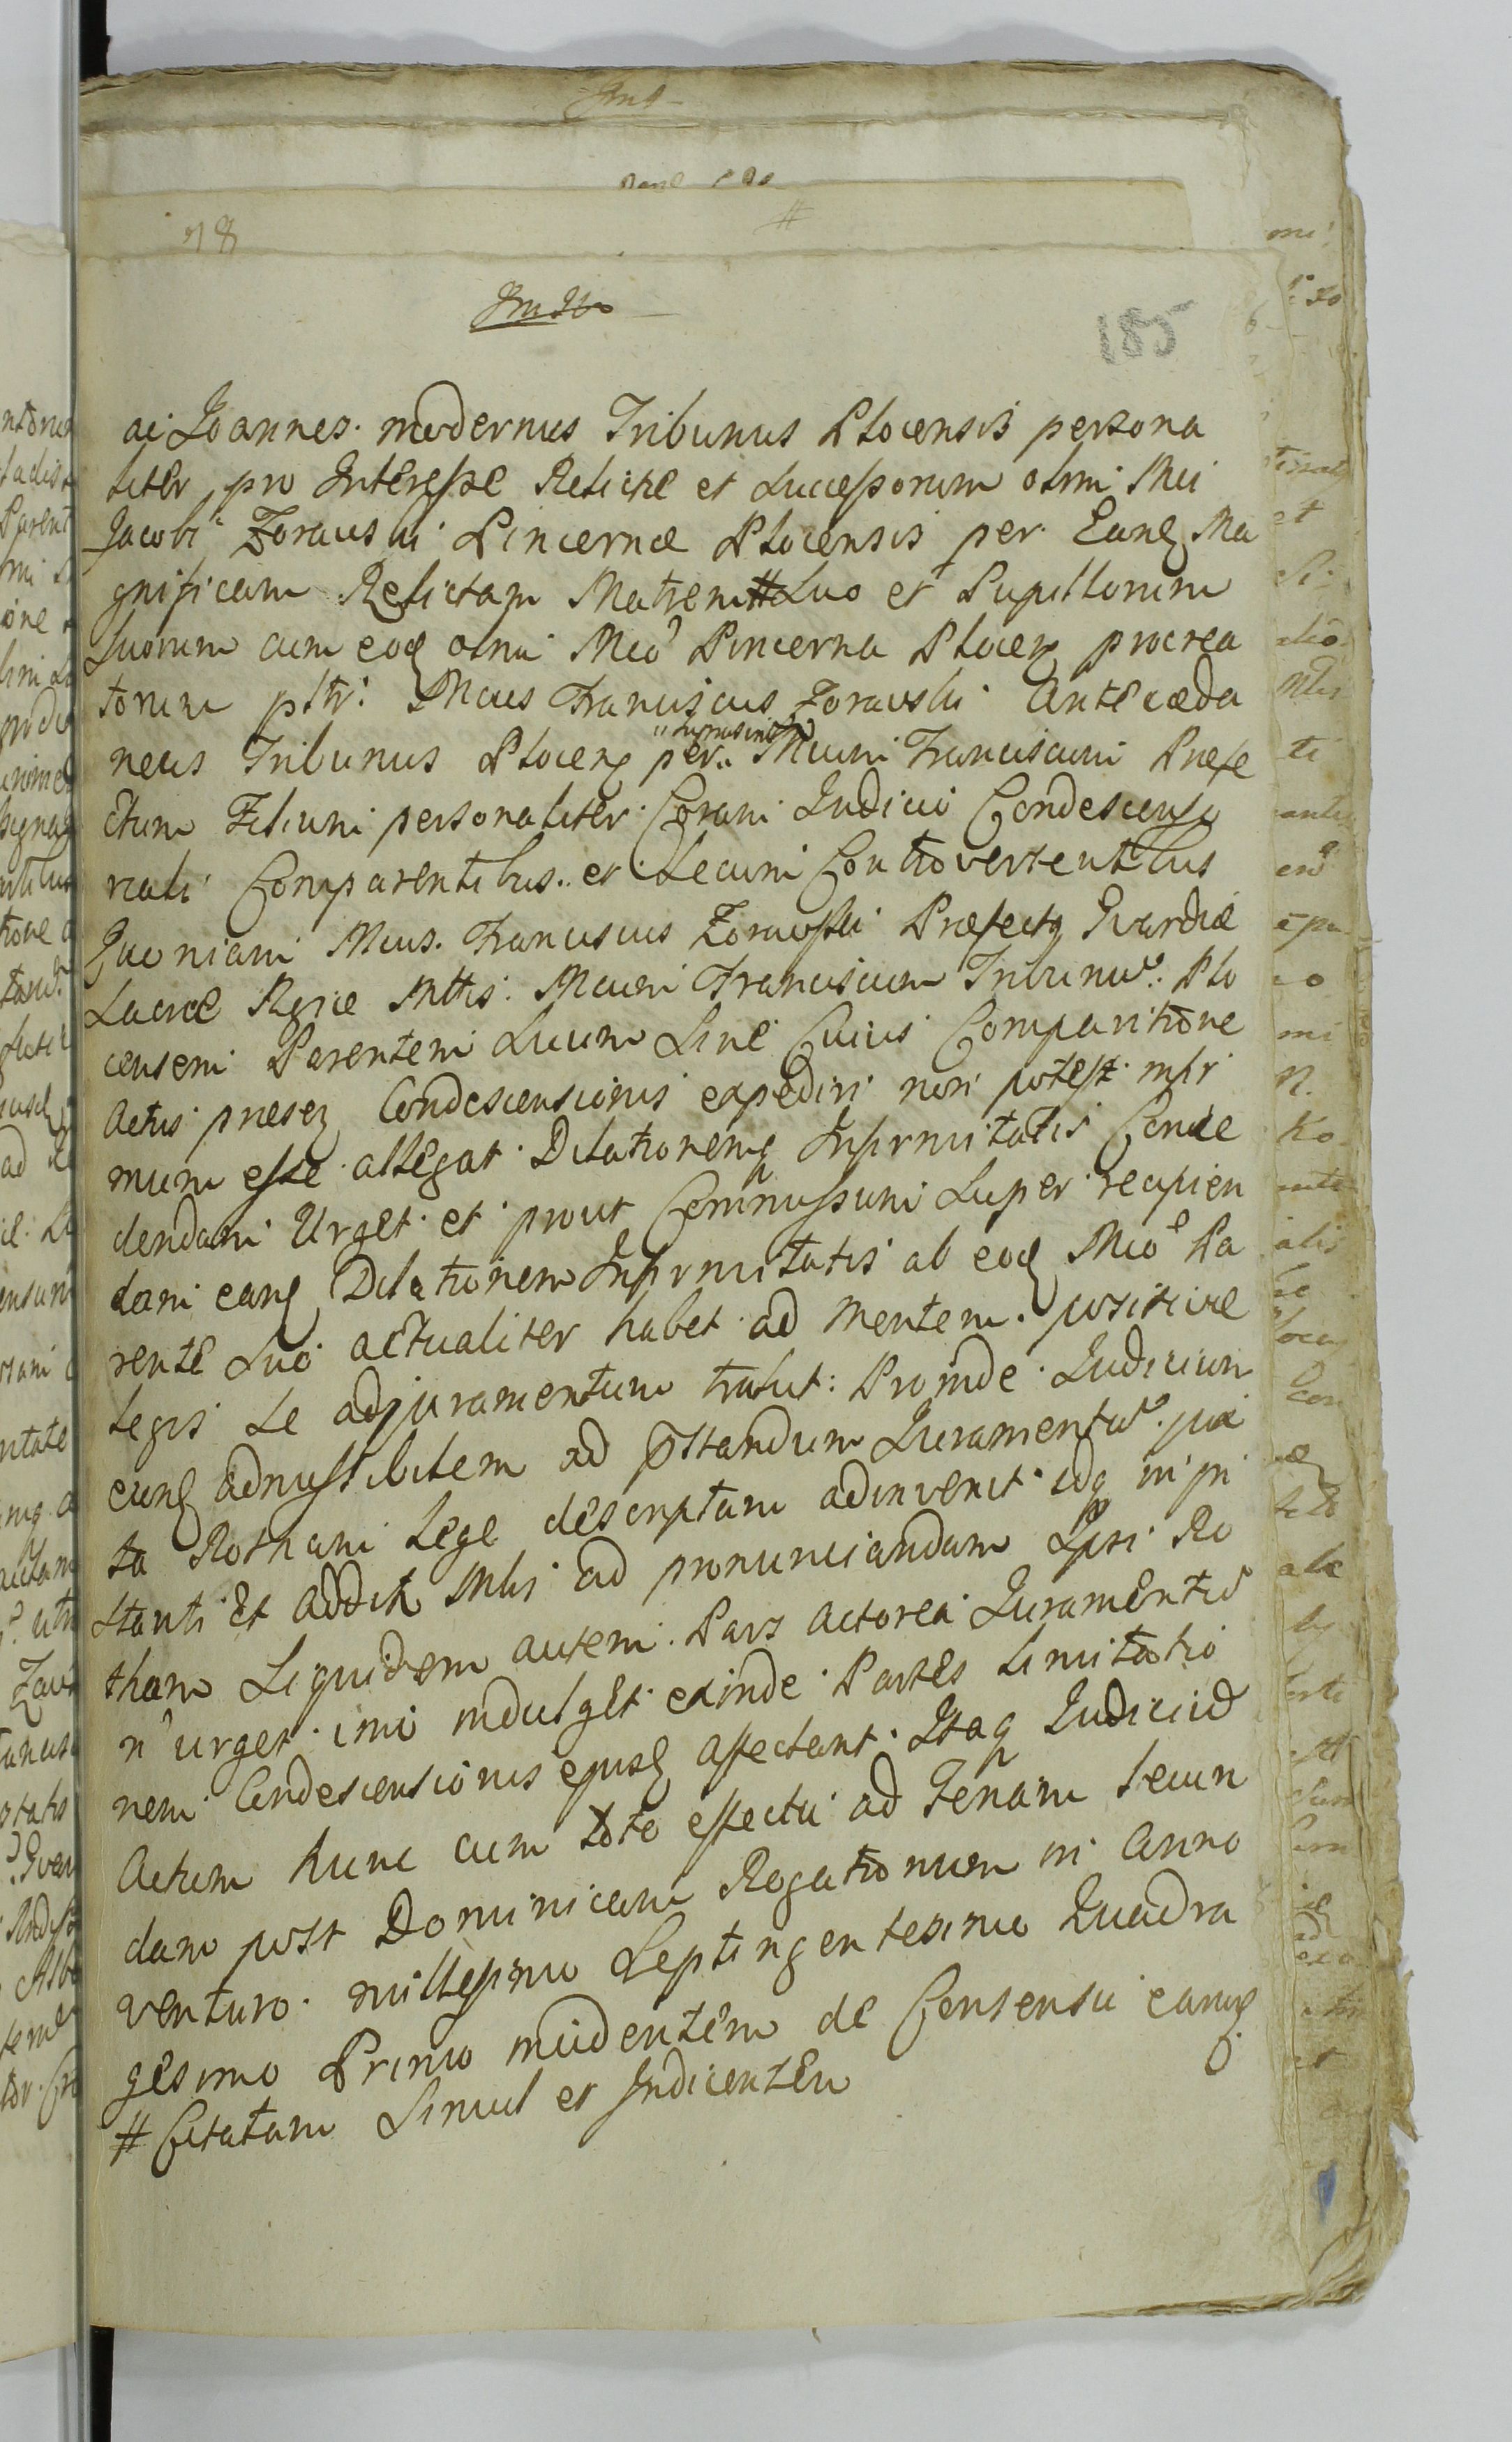 78
#
185
ai Joannes modernus Tribunus Plocensis persona
liter pro Interesse Relictæ et Successorum olmi Mci
Jacobi Zorawski Pincernæ Plocensis per Eanq Ma
gnificam Relictam Matrem # Suo et Pupillorum
suorum cum eoq olmi Mco Pincerna Plocenq procrea
torum pltr. Mcus Franciscus Zorawski Antecæda
neus Tribunus Plocenq per Mcum Franciscum Præfe
ctum Filium personaliter Coram Judicio Condescenso
riali Comparentibus et Secum Controvertentibus
Quoniam Mcus Franciscus Zorawski Præfectq Gvardiæ
Sacræ Regiæ Mttis Mcum Franciscum Tribunu Plo
censem Parentem Suum Sine Cuius Comparitione
Actus presenq Condescensionis expediri non potest infir
mum esse allegat Dilationemq Infirmitatis Conce
dendam Urget et prout Commissum Super recipien
dam eanq Dilationem Infirmitatis ab eoq Mco Pa
rente Suo actualiter habet ad mentem positivæ
Legis Se ad juramentum trahit Proinde Judicium
eunq admissibilem ad pstandum Juramentu jux
ta Rotham Lege descriptam adinvenit idq in pn
stanti Et addit Mlri ad pronunciandam Ipsi Ro
tham Siquidem autem Pars Actorea Juramentu
n urget imo indulget exinde Partes limitatio
nem Condescensionis ejusq affectant Itaq Judiciu
Actum hunc cum toto effectu ad Feriam Secun
dam post Dominicam Rogationum in Anno
venturo millesimo Septingentesimo Quadra
gesimo Primo incidentem de Consensu earunq
# Citatam Simul et Indicentem